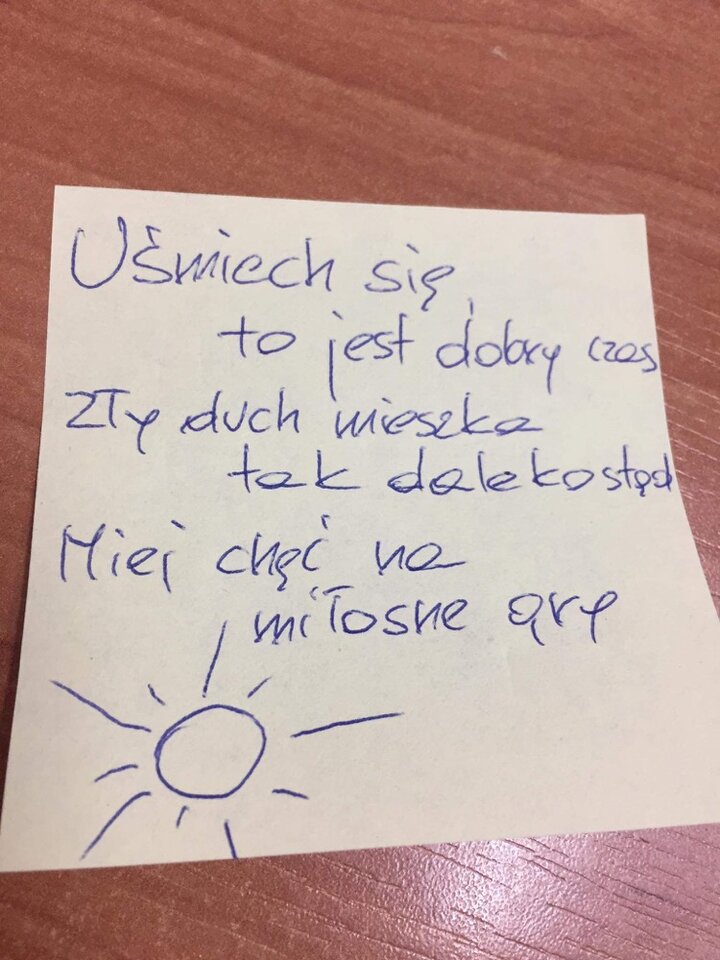 Uśmiech się,
to jest dobry czas
Zły duch mieszka
tak daleko stąd
Miej chęć na
miłosne gry